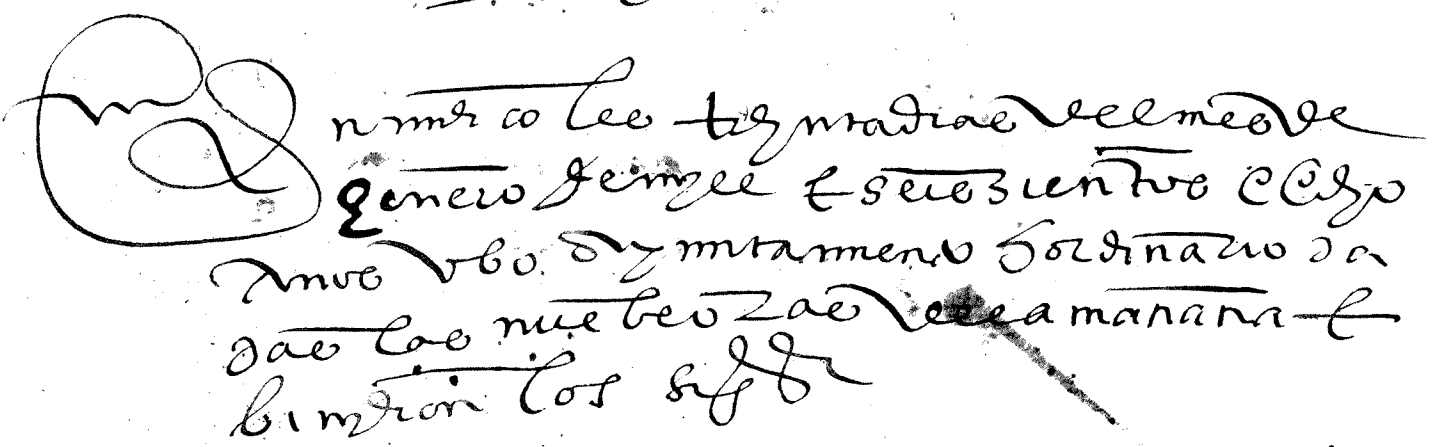 En miercoles treynta dias del mes de
henero de mill e seiszientos e ocho
años vbo ayuntamiento hordinario da
das las nuebe oras de la mañana e
binieron los sigs